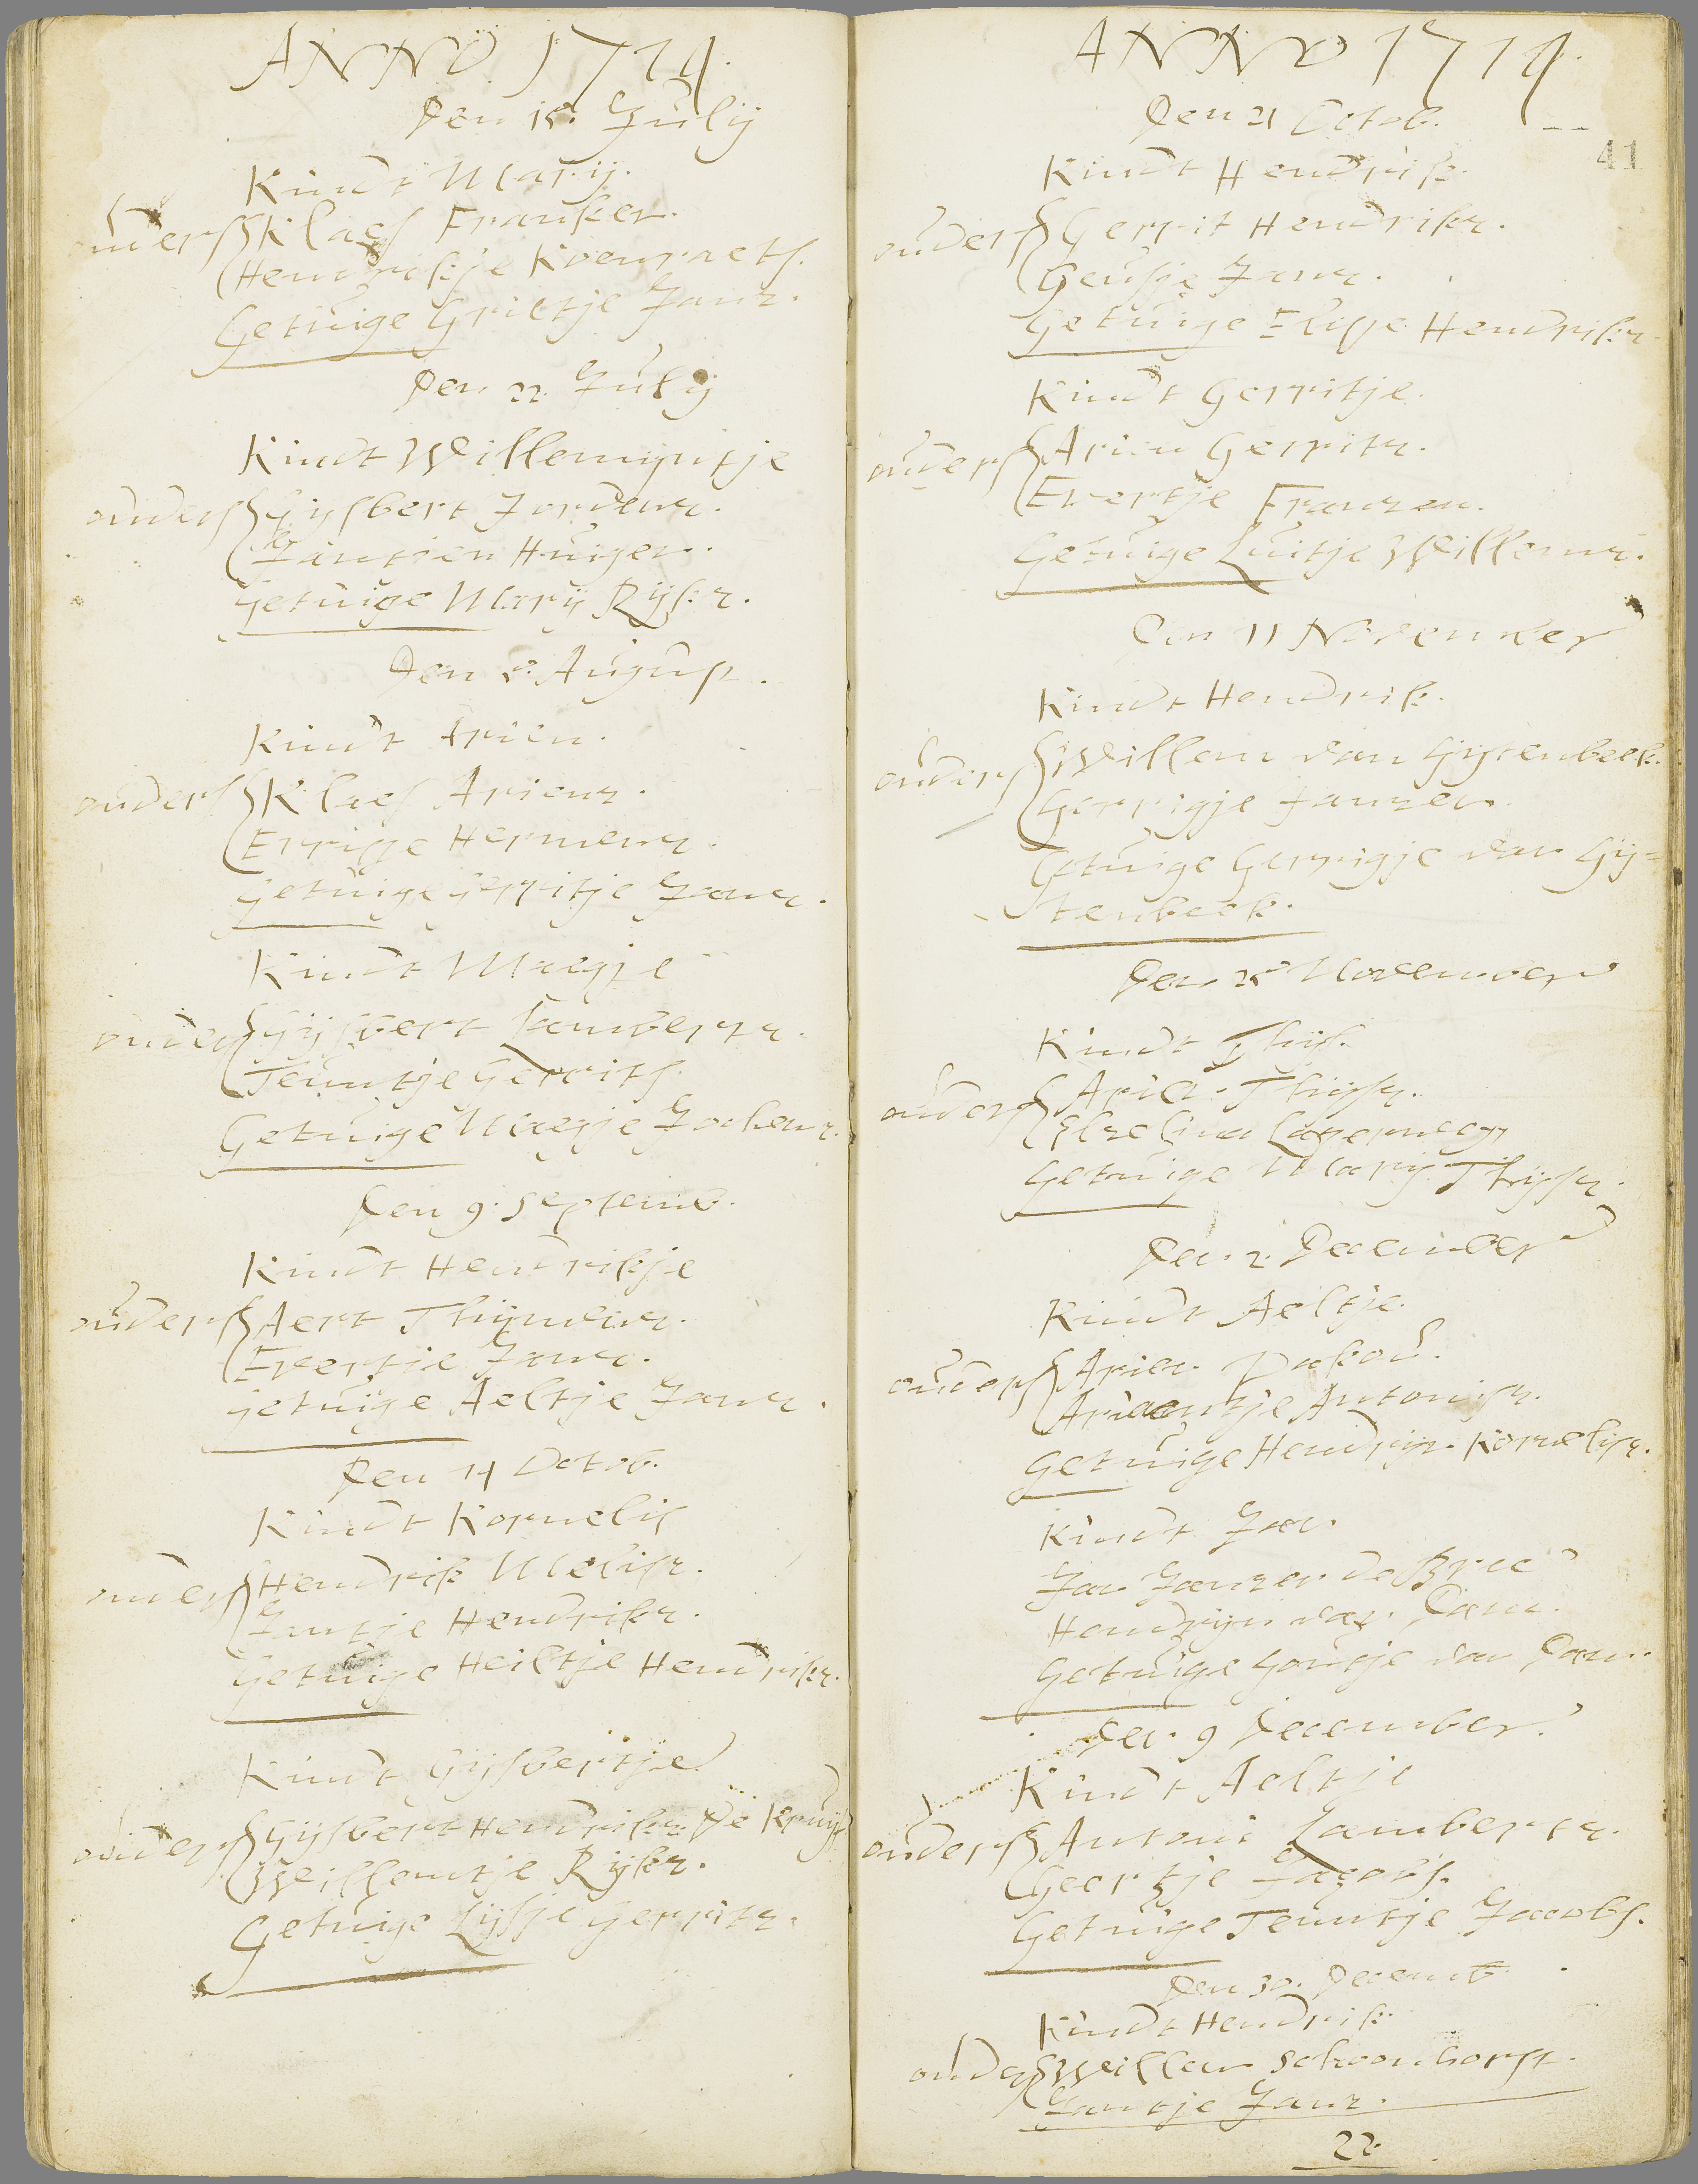 ANNO 1714.
Den 15. July
Kindt Marij.
ouders Klaes Franken.
Hendrikje Koenraets.
Getuige Grietje Janz.
Den 22. July
Kindt Willemyntje
ouders Gijsbert Jordenz.
Jantien Huigen.
getuige Marij Rijkz.
Den 5. August.
Kindt Arien.
ouders Klaes Arienz.
Errisje Hermenz.
getuige Gerritje Janz.
Kindt Maegje
ouders Gijsbert Lambertz.
Teuntje Gerrits.
Getuige Maegje Jochemz.
Den 9. Septemb.
Kindt Hendrikje
ouders Aert Thijmenz.
Evertje Janz.
getuige Aeltje Janz.
Den 14 Octob.
Kindt Kornelis
ouders Hendrik Mevisz.
Jantje Hendrikz.
Getuige Heiltje Hendrikz.
Kindt Gijsbertje
ouders Gijsbert Hendrikz. De Kruijf
Willemtje Rijkz.
Getuige Lijsje gerritz.
ANNO 1714.
41
Den 21 Octob.
Kindt Hendrik.
ouders Gerrit Hendrikz.
Geusje Janz.
Getuige Elisje Hendrikz.
Kindt Gerritje.
ouders Arien Gerritz.
Evertje Franzen.
Getuige Luitje Willemz.
Den 11 November
Kindt Hendrik.
ouders Willem van Gijtenbeek.
Gerrigje Janzen.
Getuige Gerrigje van Gij=
tenbeek.
Den 25 November
Kindt Thijs.
ouders Arien Thijsz.
Lagerweg
Getuige Marij Thijsz.
Den 2. December
Kindt Aeltje.
ouders Arien
Ariaentje Antonisz.
Getuige Hendrijn Kornelisz.
Kindt Jan.
Jan Janzen de Bree
Hendrijn van Dam.
Getuige Goutje van Dam.
Den 9 December.
Kindt Aeltje
ouders Antoni Lambertz.
Geertje Jacobs.
Getuige Teuntje Jacobs.
Den 30. Decemb.
Kindt Hendrik
ouders Willem Schoonhorst.
Jantje Janz.
22